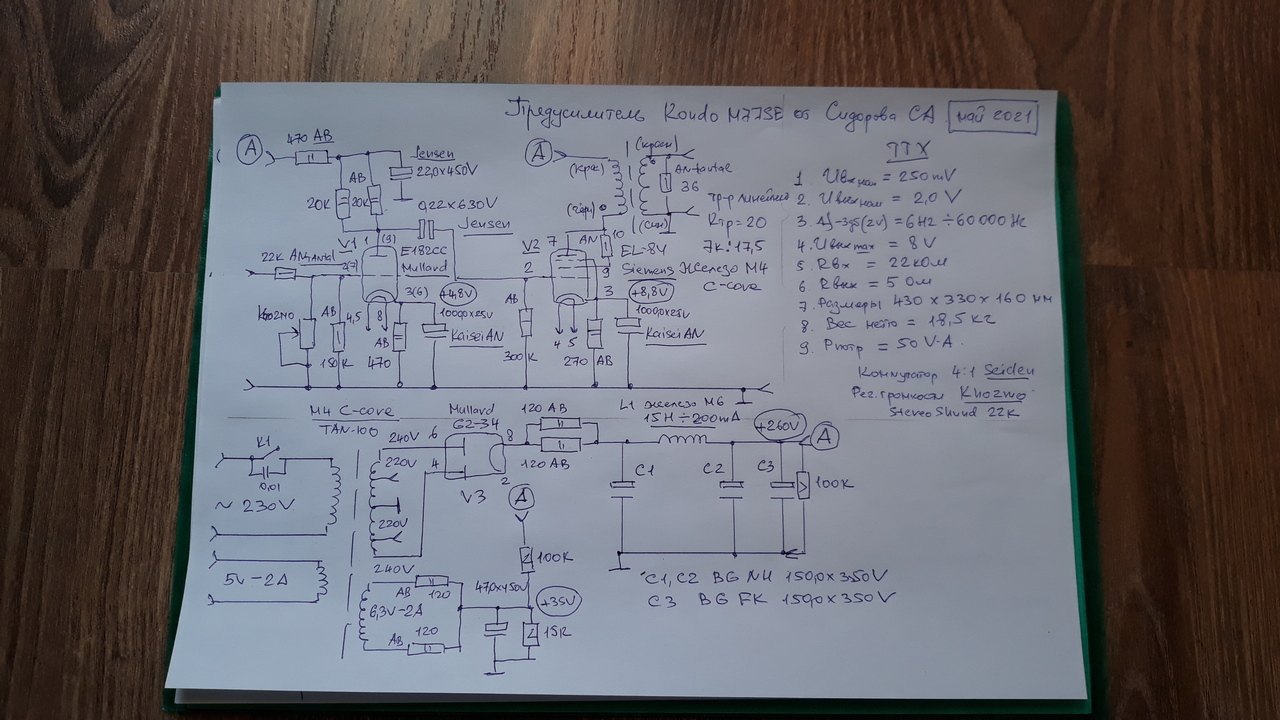 Предусилитель Kondo M77SE от Сидорова СА май 2021
A
470 AB
Jensen
220x450V
20K
AB
20K
0,22x630V
Jensen
V1 1 (3)
E182CC
Mullard
22K AN
2(7)
3(6)
+4,8V
1000,0x25V
Kaisei AN
AB
4,5
8
150K
AB
470
A
(красн)
36
(син)
Тр-р линейный
Rтр = 20
7K : 17,5
Железо M4
C-core
AN
10
V2 7
EL-84
Siemens
2
9
3
+8,8V
1000,0x25V
Kaisei AN
AB
300K
4 5
270
AB
ТТХ
1 Uвх ном = 250mV
2. Uвых ном = 2,0 V
3. Δf-3дб(2V) = 6Hz ÷ 60 000 Hz
4. Uвых max = 8 V
5. Rвх = 22кОм
6 Rвых = 5 Ом
7. Размеры 430 x 330 x 160 мм
8. Вес нетто = 18,5 кг
9. Pпотр = 50 V·A.
Коммутатор 4:1 Seiden
Рег. громкости Khozmo
Stereo Shund 22K
M4 C-core
TAN-100
K1
0,01
~ 230V
5V-2A
240V
220V
220V
240V
6
4
Mullard
GZ-34
8
2
V3
120 AB
120 AB
L1 железо M6
15H ÷ 200mA
+260V
A
C1
C2
C3
100K
A
100K
AB
120
6,3V-2A
AB
120
470x450V
+35V
15K
C1, C2 BG NH 150,0 x 350V
C3 BG FK 150,0 x 350V